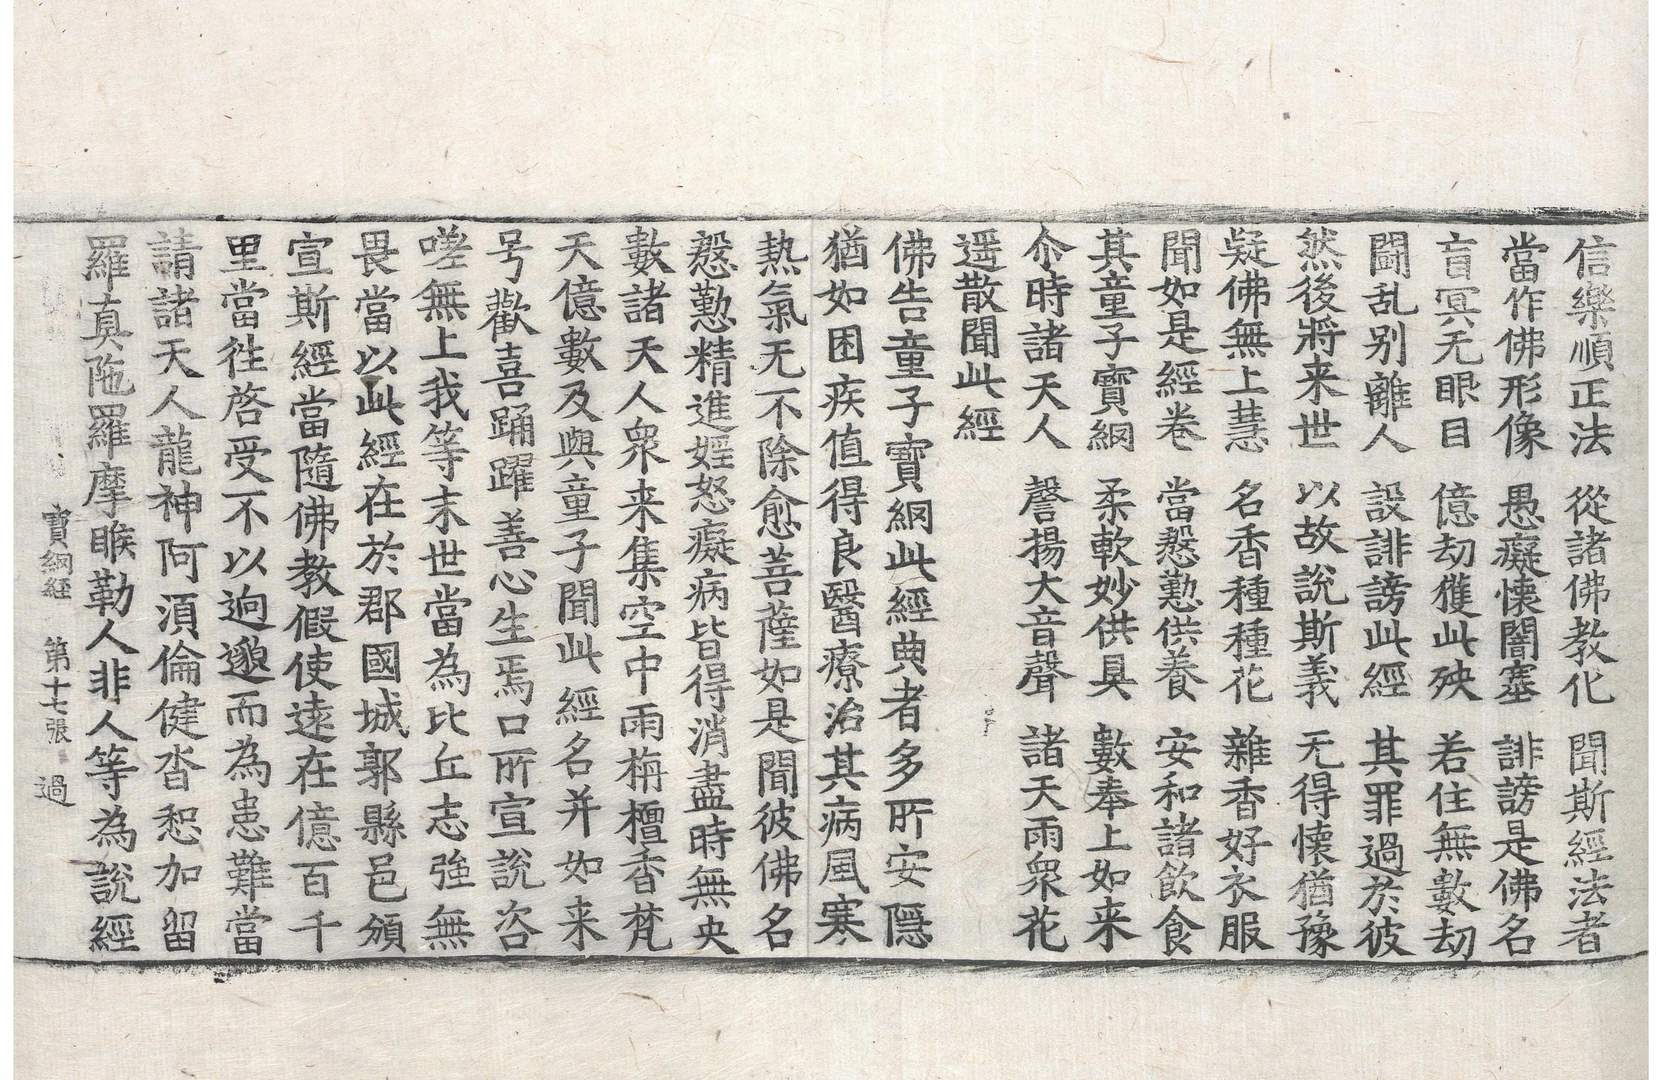 信樂順正法　從諸佛教化　聞斯經法者
當作佛形像　愚癡懷闇塞　誹謗是佛名
盲冥无眼目　億劫獲此殃　若住無數劫
鬪乱别離人　設誹謗此經　其罪過於彼
然後將来世　以故說斯義　无得懷猶豫
疑佛無上慧　名香種種花　雜香好衣服
聞如是經卷　當慇懃供養　安和諸飲食
其童子寶網　柔軟妙供具　數奉上如来
尒時諸天人　謦揚大音聲　諸天雨衆花
遥散聞此經
佛告童子寶網此經典者多所安隱
猶如困疾值得良醫療治其病風寒
熱氣无不除愈菩薩如是聞彼佛名
慇懃精進婬怒癡病皆得消盡時無央
數諸天人衆来集空中雨栴檀香梵
天億數及與童子聞此經名并如来
号歡喜踊躍善心生焉口所宣說咨
嗟無上我等末世當為比丘志強無
畏當以此經在於郡國城郭縣邑頒
宣斯經當隨佛教假使遠在億百千
里當往啓受不以逈邈而為患難當
請諸天人龍神阿須倫健沓惒加留
羅真陁羅摩睺勒人非人等為說經
寶網經　第十七張　過